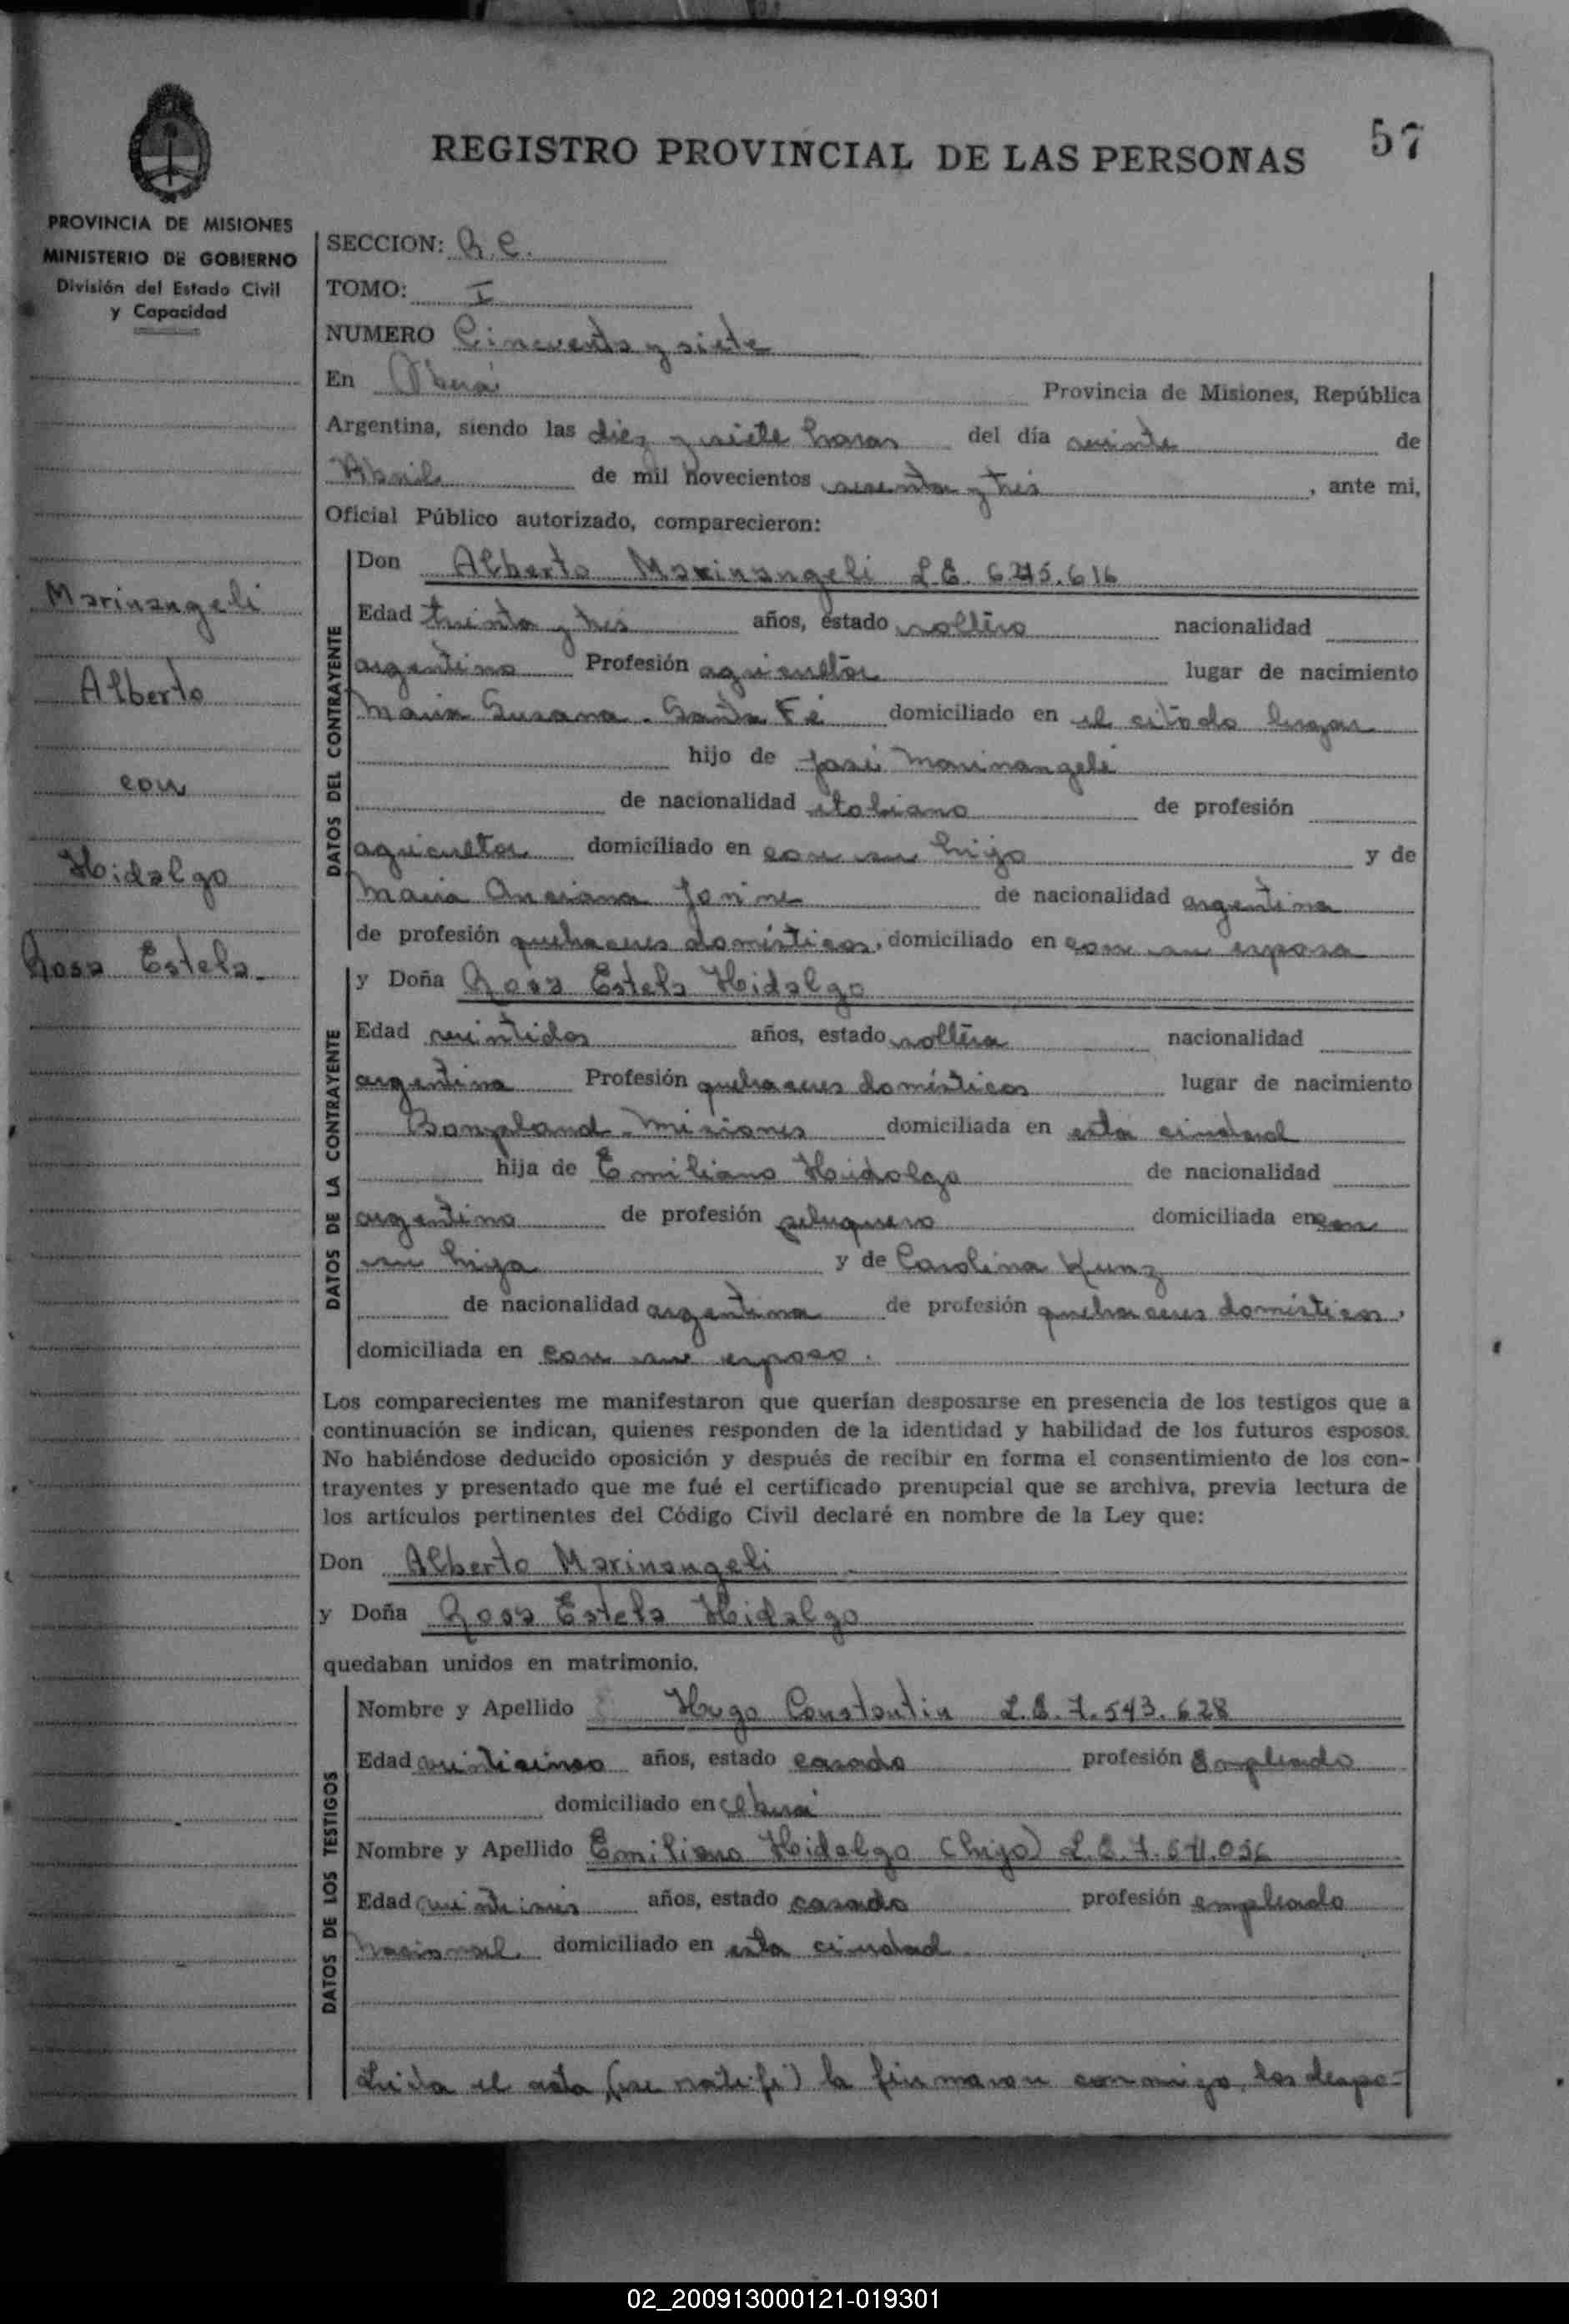 57
REGISTRO PROVINCIAL DE LAS PERSONAS
PROVINCIA DE MISIONES
MINISTERIO DE GOBIERNO
División del Estado Civil
y Capacidad
Marinangeli
Alberto
con
Hidalgo
Rosa Estela
SECCION: R.C.
TOMO: I
NUMERO Cincuenta y siete
En Oberá Provincia de Misiones, República
Argentina, siendo las diez y siete horas del día veinte de
Abril de mil novecientos sesenta y tres, ante mi,
Oficial Público autorizado, comparecieron:
DATOS DEL CONTRAYENTE
Don Alberto Marinangeli L.E.
Edad treinta y tres años, estado soltero nacionalidad
argentino Profesión agricultor lugar de nacimiento
Maria Susana - Santa Fé domiciliado en el citado lugar
hijo de José Marinangeli
de nacionalidad italiano de profesión
agricultor domiciliado en con su hijo y de
Maria de nacionalidad argentina
de profesión quehaceres domésticos, domiciliado en con su esposo
DATOS DE LA CONTRAYENTE
y Doña Rosa Estela Hidalgo
Edad veintidos años, estado soltera nacionalidad
argentina Profesión quehaceres domésticos lugar de nacimiento
Bonpland - Misiones domiciliada en esta ciudad
hija de Emiliano Hidalgo de nacionalidad
argentino de profesión peluquero domiciliada en con
su hija y de Carolina Kunz
de nacionalidad argentina de profesión quehaceres domésticos,
domiciliada en con su esposo.
Los comparecientes me manifestaron que querían desposarse en presencia de los testigos que a
continuación se indican, quienes responden de la identidad y habilidad de los futuros esposos.
No habiéndose deducido oposición y después de recibir en forma el consentimiento de los con-
trayentes y presentado que me fué el certificado prenupcial que se archiva, previa lectura de
los artículos pertinentes del Código Civil declaré en nombre de la Ley que:
Don Alberto Marinangeli
y Doña Rosa Estela Hidalgo
quedaban unidos en matrimonio.
DATOS DE LOS TESTIGOS
Nombre y Apellido Hugo Constantin L.E. 7.543.628
Edad veinticinco años, estado casado profesión Empleado
domiciliado en Oberá
Nombre y Apellido Emiliano Hidalgo (hijo) L.E.
Edad años, estado casado profesión empleado
nacional domiciliado en esta ciudad.
Leida el acta, la firmaron conmigo, los despo-
02_200913000121-019301